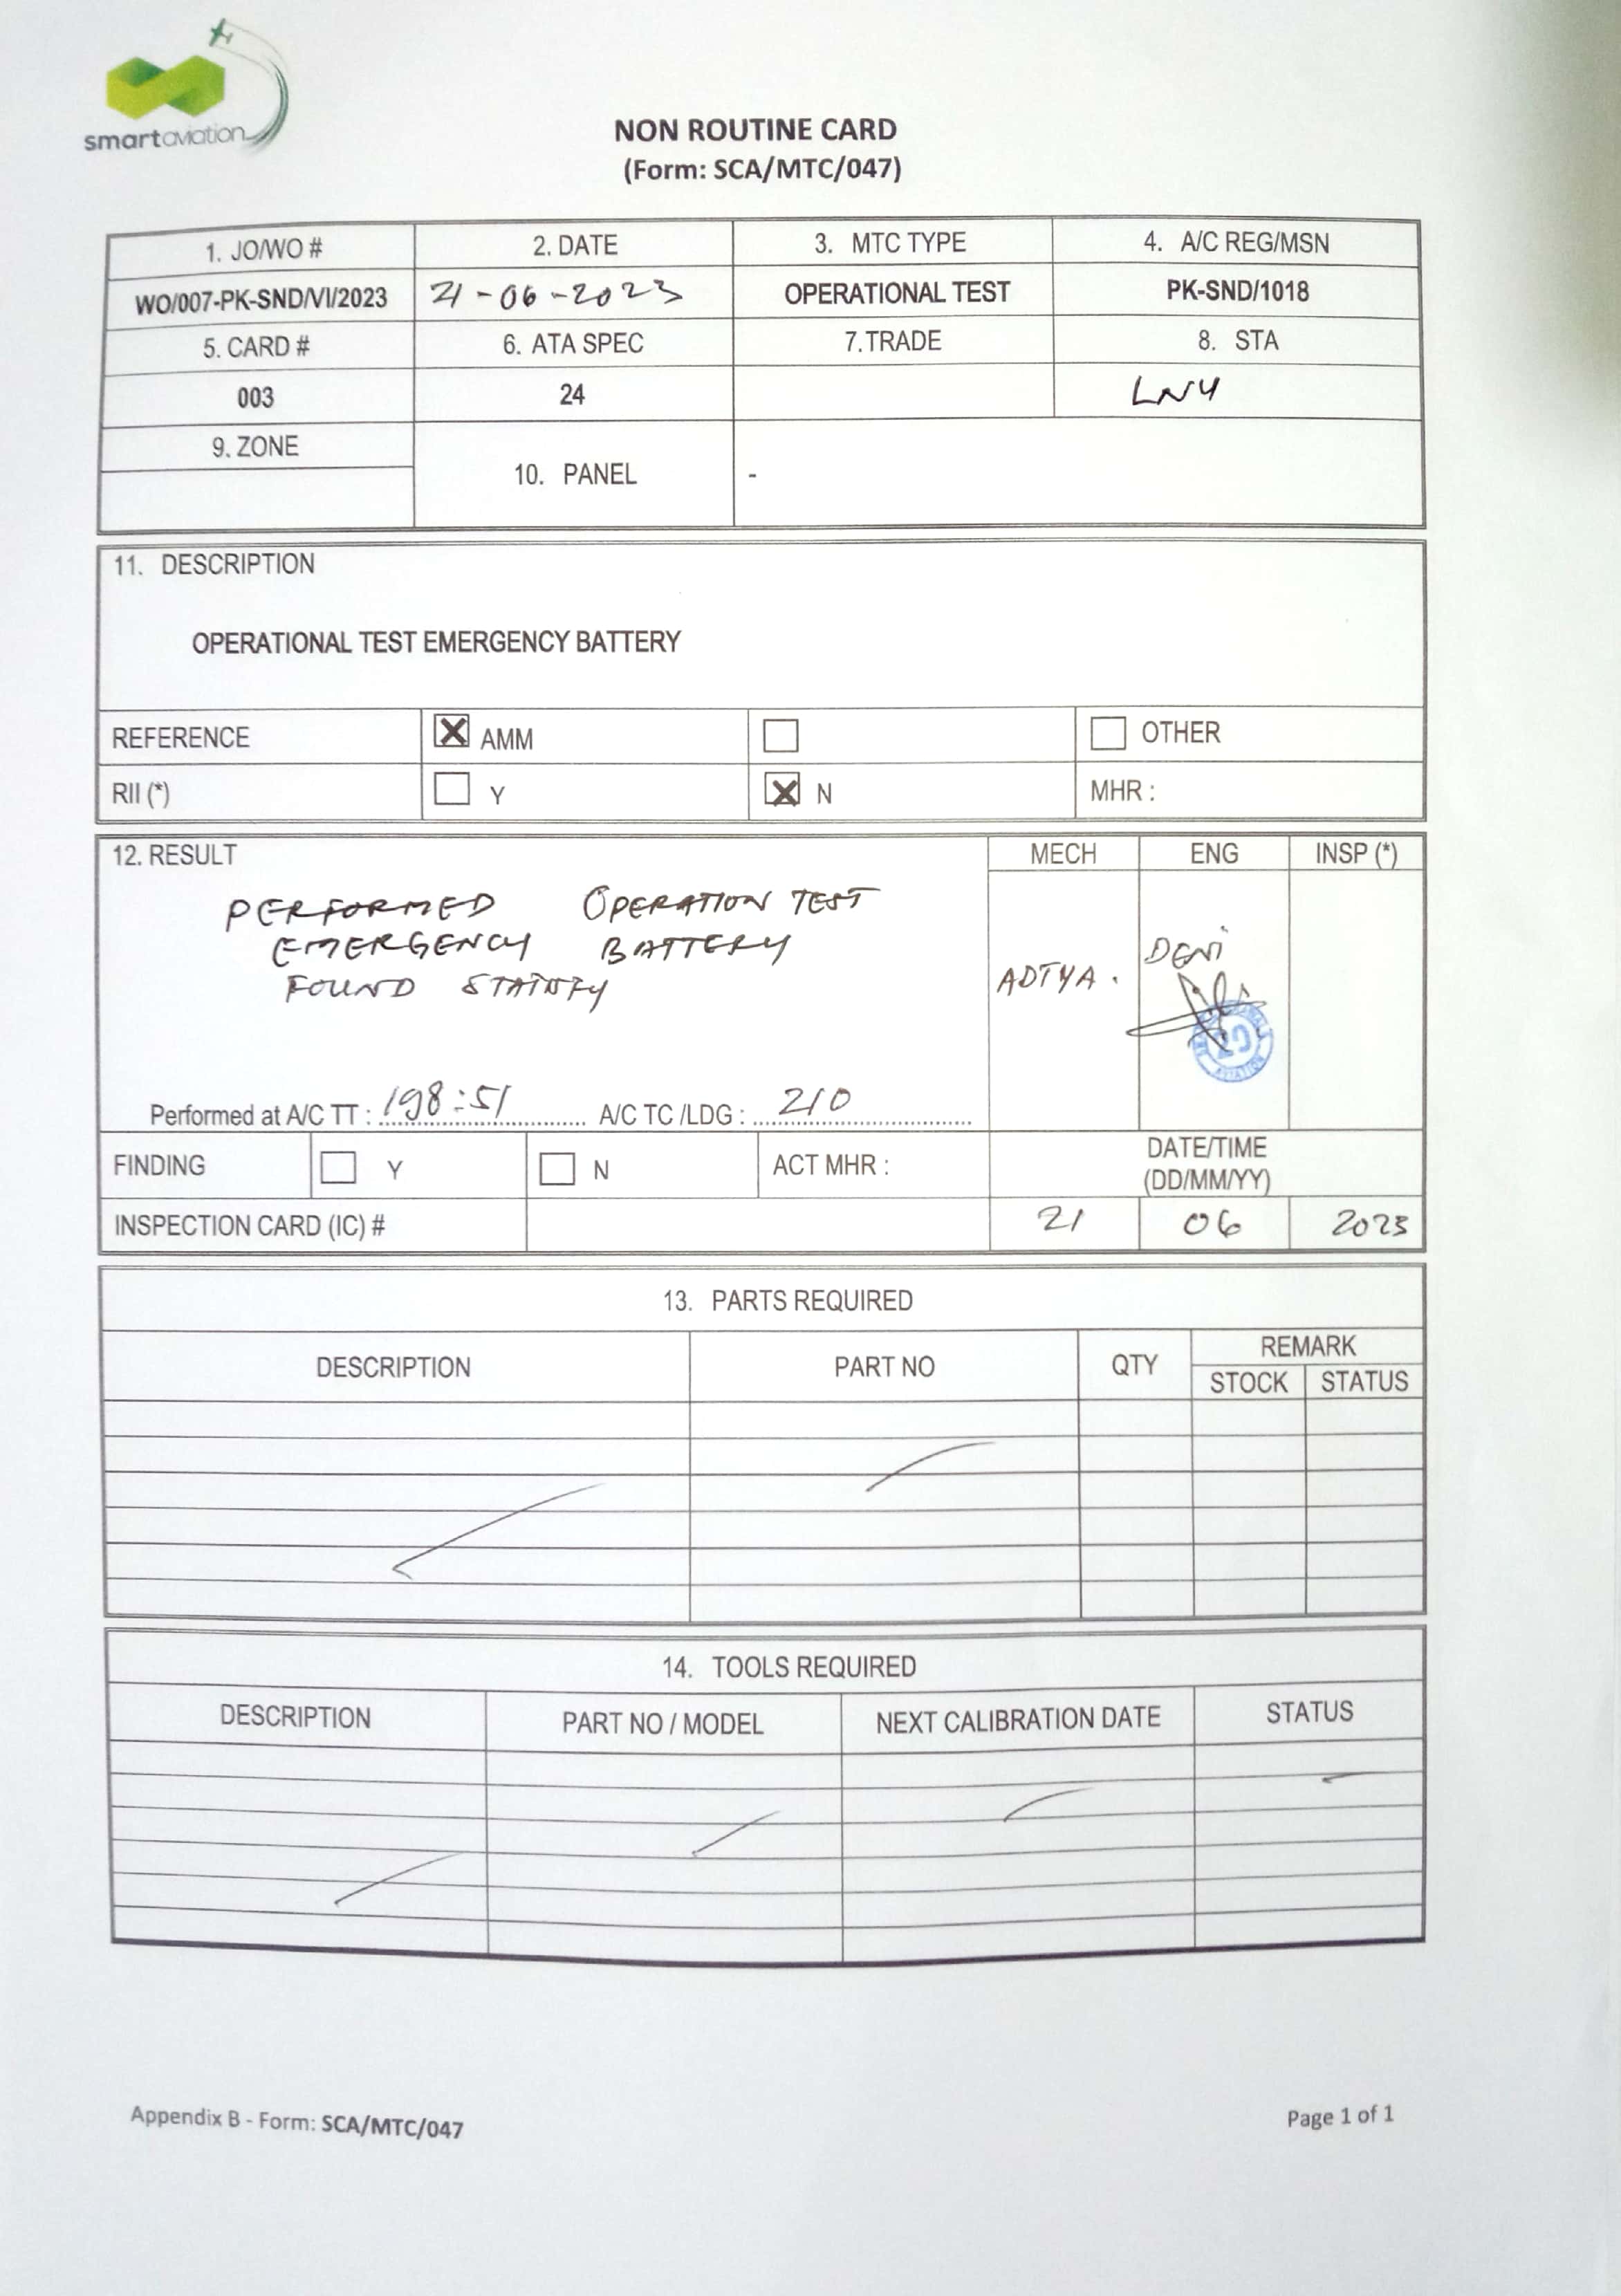 smartaviation
NON ROUTINE CARD
(Form: SCA/MTC/047)
1. JO/WO # 2. DATE 3. MTC TYPE 4. A/C REG/MSN
WO/007-PK-SND/VI/2023 21-06-2023 OPERATIONAL TEST PK-SND/1018
5. CARD # 6. ATA SPEC 7.TRADE 8. STA
003 24 LNU
9. ZONE
10. PANEL -
11. DESCRIPTION
OPERATIONAL TEST EMERGENCY BATTERY
REFERENCE AMM OTHER
RII (*) Y N MHR :
12. RESULT MECH ENG INSP (*)
PERFORMED OPERATION TEST
EMERGENCY BATTERY
FOUND
ADTYA. DENI
20
AVIATION
Performed at A/C TT : 198:51 A/C TC /LDG : 210
FINDING Y N ACT MHR : DATE/TIME
(DD/MM/YY)
INSPECTION CARD (IC) # 21 06 2023
13. PARTS REQUIRED
DESCRIPTION PART NO QTY REMARK
STOCK STATUS
14. TOOLS REQUIRED
DESCRIPTION PART NO / MODEL NEXT CALIBRATION DATE STATUS
Appendix B - Form: SCA/MTC/047 Page 1 of 1